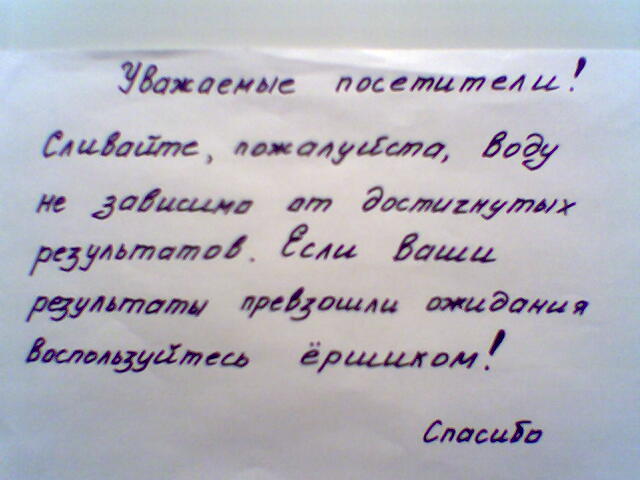 Уважаемые посетители!
Сливайте, пожалуйста, воду
не зависимо от достигнутых
результатов. Если ваши
результаты превзошли ожидания
воспользуйтесь ёршиком!
Спасибо